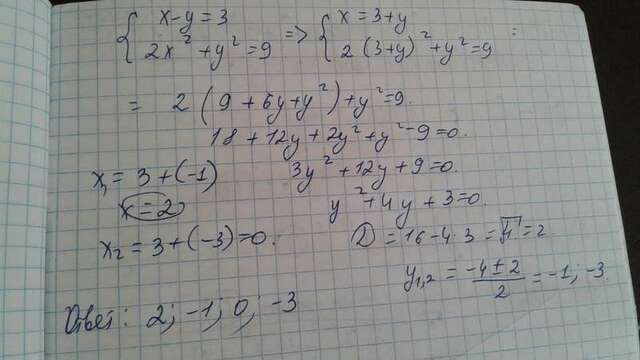 { x - y = 3
2x² + y² = 9 => { x = 3 + y
2(3+y)² + y² = 9 =
= 2(9 + 6y + y²) + y² = 9
18 + 12y + 2y² + y² - 9 = 0
3y² + 12y + 9 = 0
y² + 4y + 3 = 0
D = 16 - 4·3 = √4 = 2
y₁,₂ = (-4 ± 2)/2 = -1; -3
x₁ = 3 + (-1)
x = 2
x₂ = 3 + (-3) = 0
Ответ: 2; -1; 0; -3